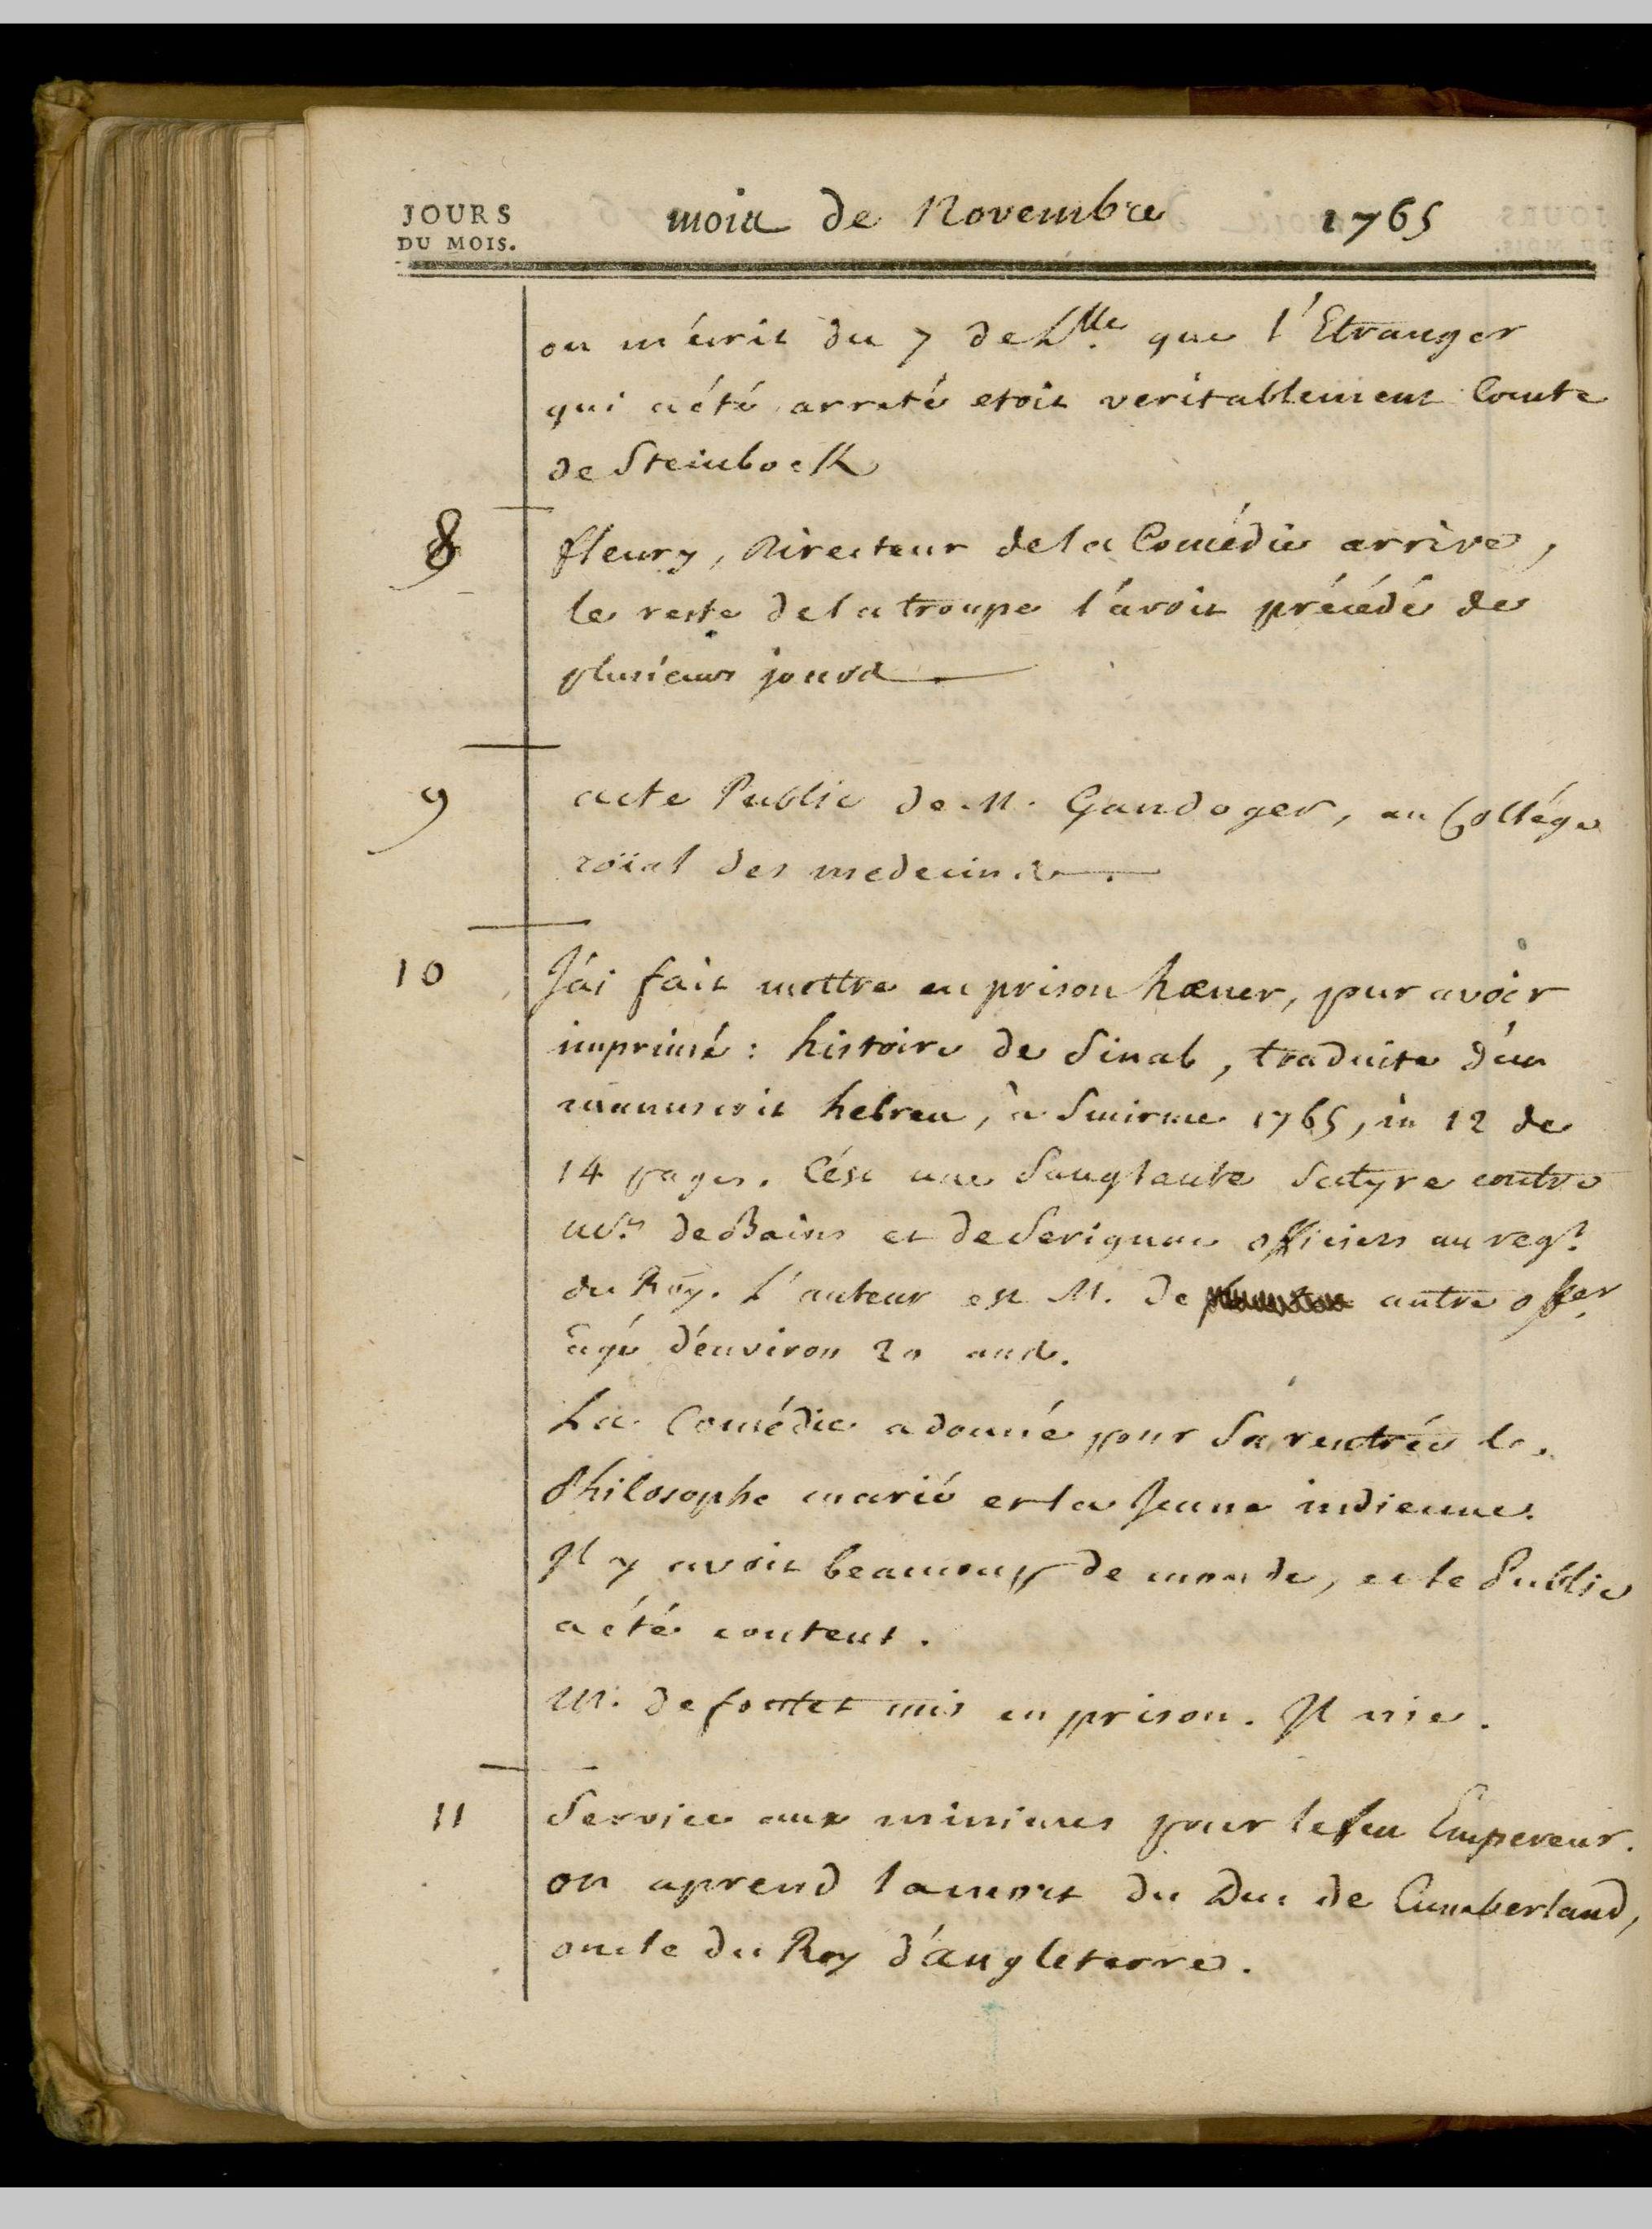 JOURS
DU MOIS.
mois de Novembre 1765
on m'écrit du 7 de L.lle que l'Etranger
qui a été arreté etoit veritablement Comte
de Steinbock
8
fleury, Directeur de la Comédie arrive,
le reste de la troupe l'avoit précédé de
plusieurs jours.
9
acte Public de M. Gandoger, au Collége
roïal des medecins.
10
J'ai fait mettre en prison hæner, pour avoir
imprimé : histoire de Sinab, traduite d'un
manuscrit hebreu, à Smirne 1765, in 12 de
14 pages. C'ést une Sanglante Satyre contre
Mrs. de Bains et de Serignac officiers au regt.
du Roy. L'auteur est M. de autre offer.
âgé d'environ 20 ans.
La Comédie a donné pour Sa rentrée le
Philosophe marié et la Jeune indienne.
Il y avoit beaucoup de monde, et le Public
a été content.
M. de fontet mis en prison. Il nie.
11
Service aux minimes pour le feu Empereur.
on aprend la mort du Duc de Cumberland,
oncle du Roy d'angleterre.